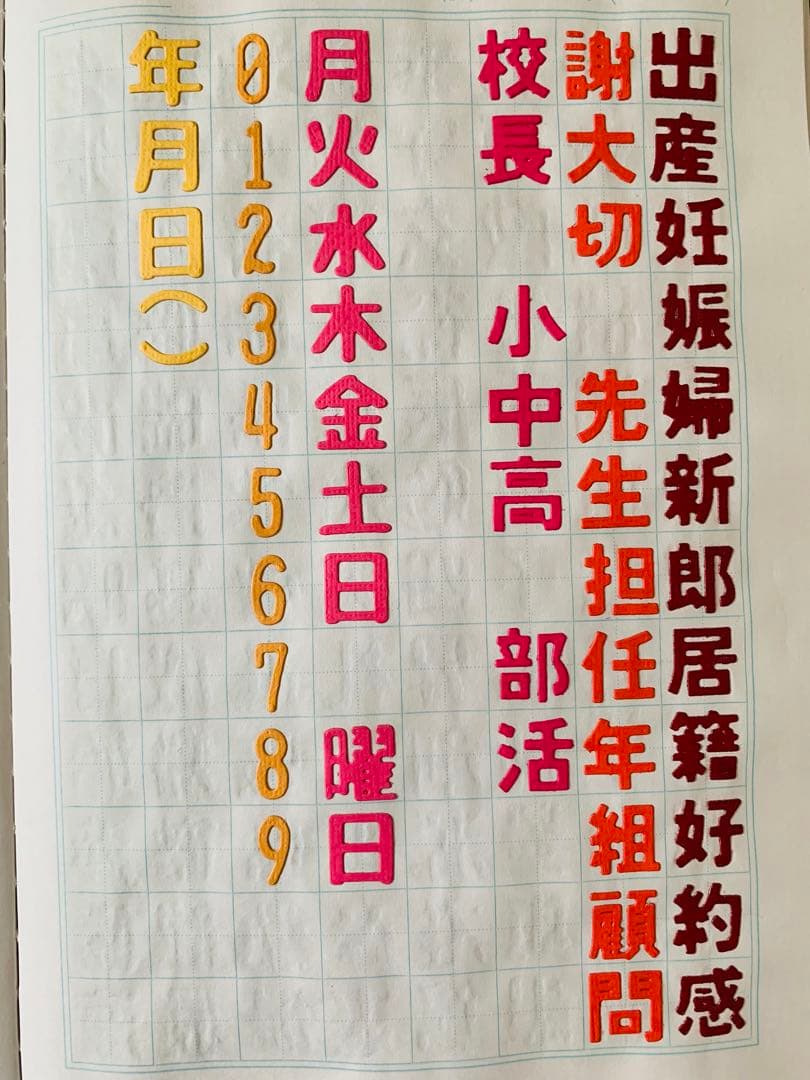 出産妊娠婦新郎居籍好約感
謝大切 先生担任年組顧問
校長 小中高 部活
月火水木金土日 曜日
0123456789
年月日()